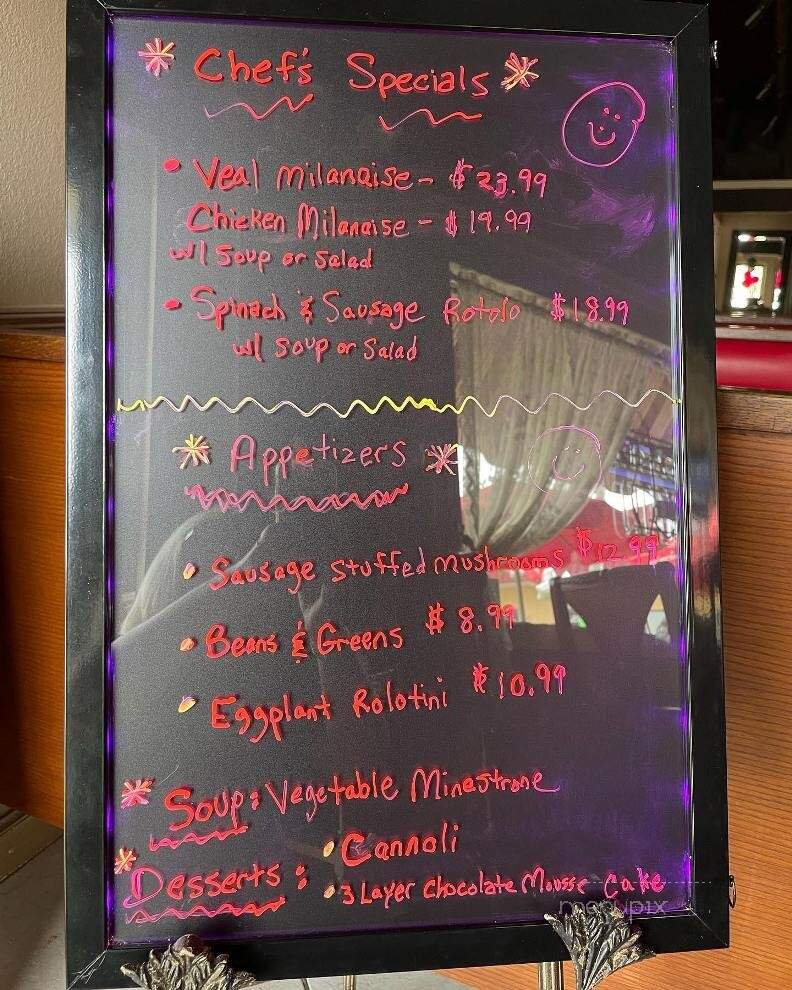 * Chef's Specials *
• Veal Milanaise - $23.99
Chicken Milanaise - $19.99
w/ Soup or Salad
• Spinach & Sausage Rotolo $18.99
w/ Soup or Salad
* Appetizers *
• Sausage Stuffed Mushrooms $12.99
• Beans & Greens $8.99
• Eggplant Rolotini $10.99
* Soup: Vegetable Minestrone
* Desserts: • Cannoli
• 3 Layer Chocolate Mousse Cake
menupix